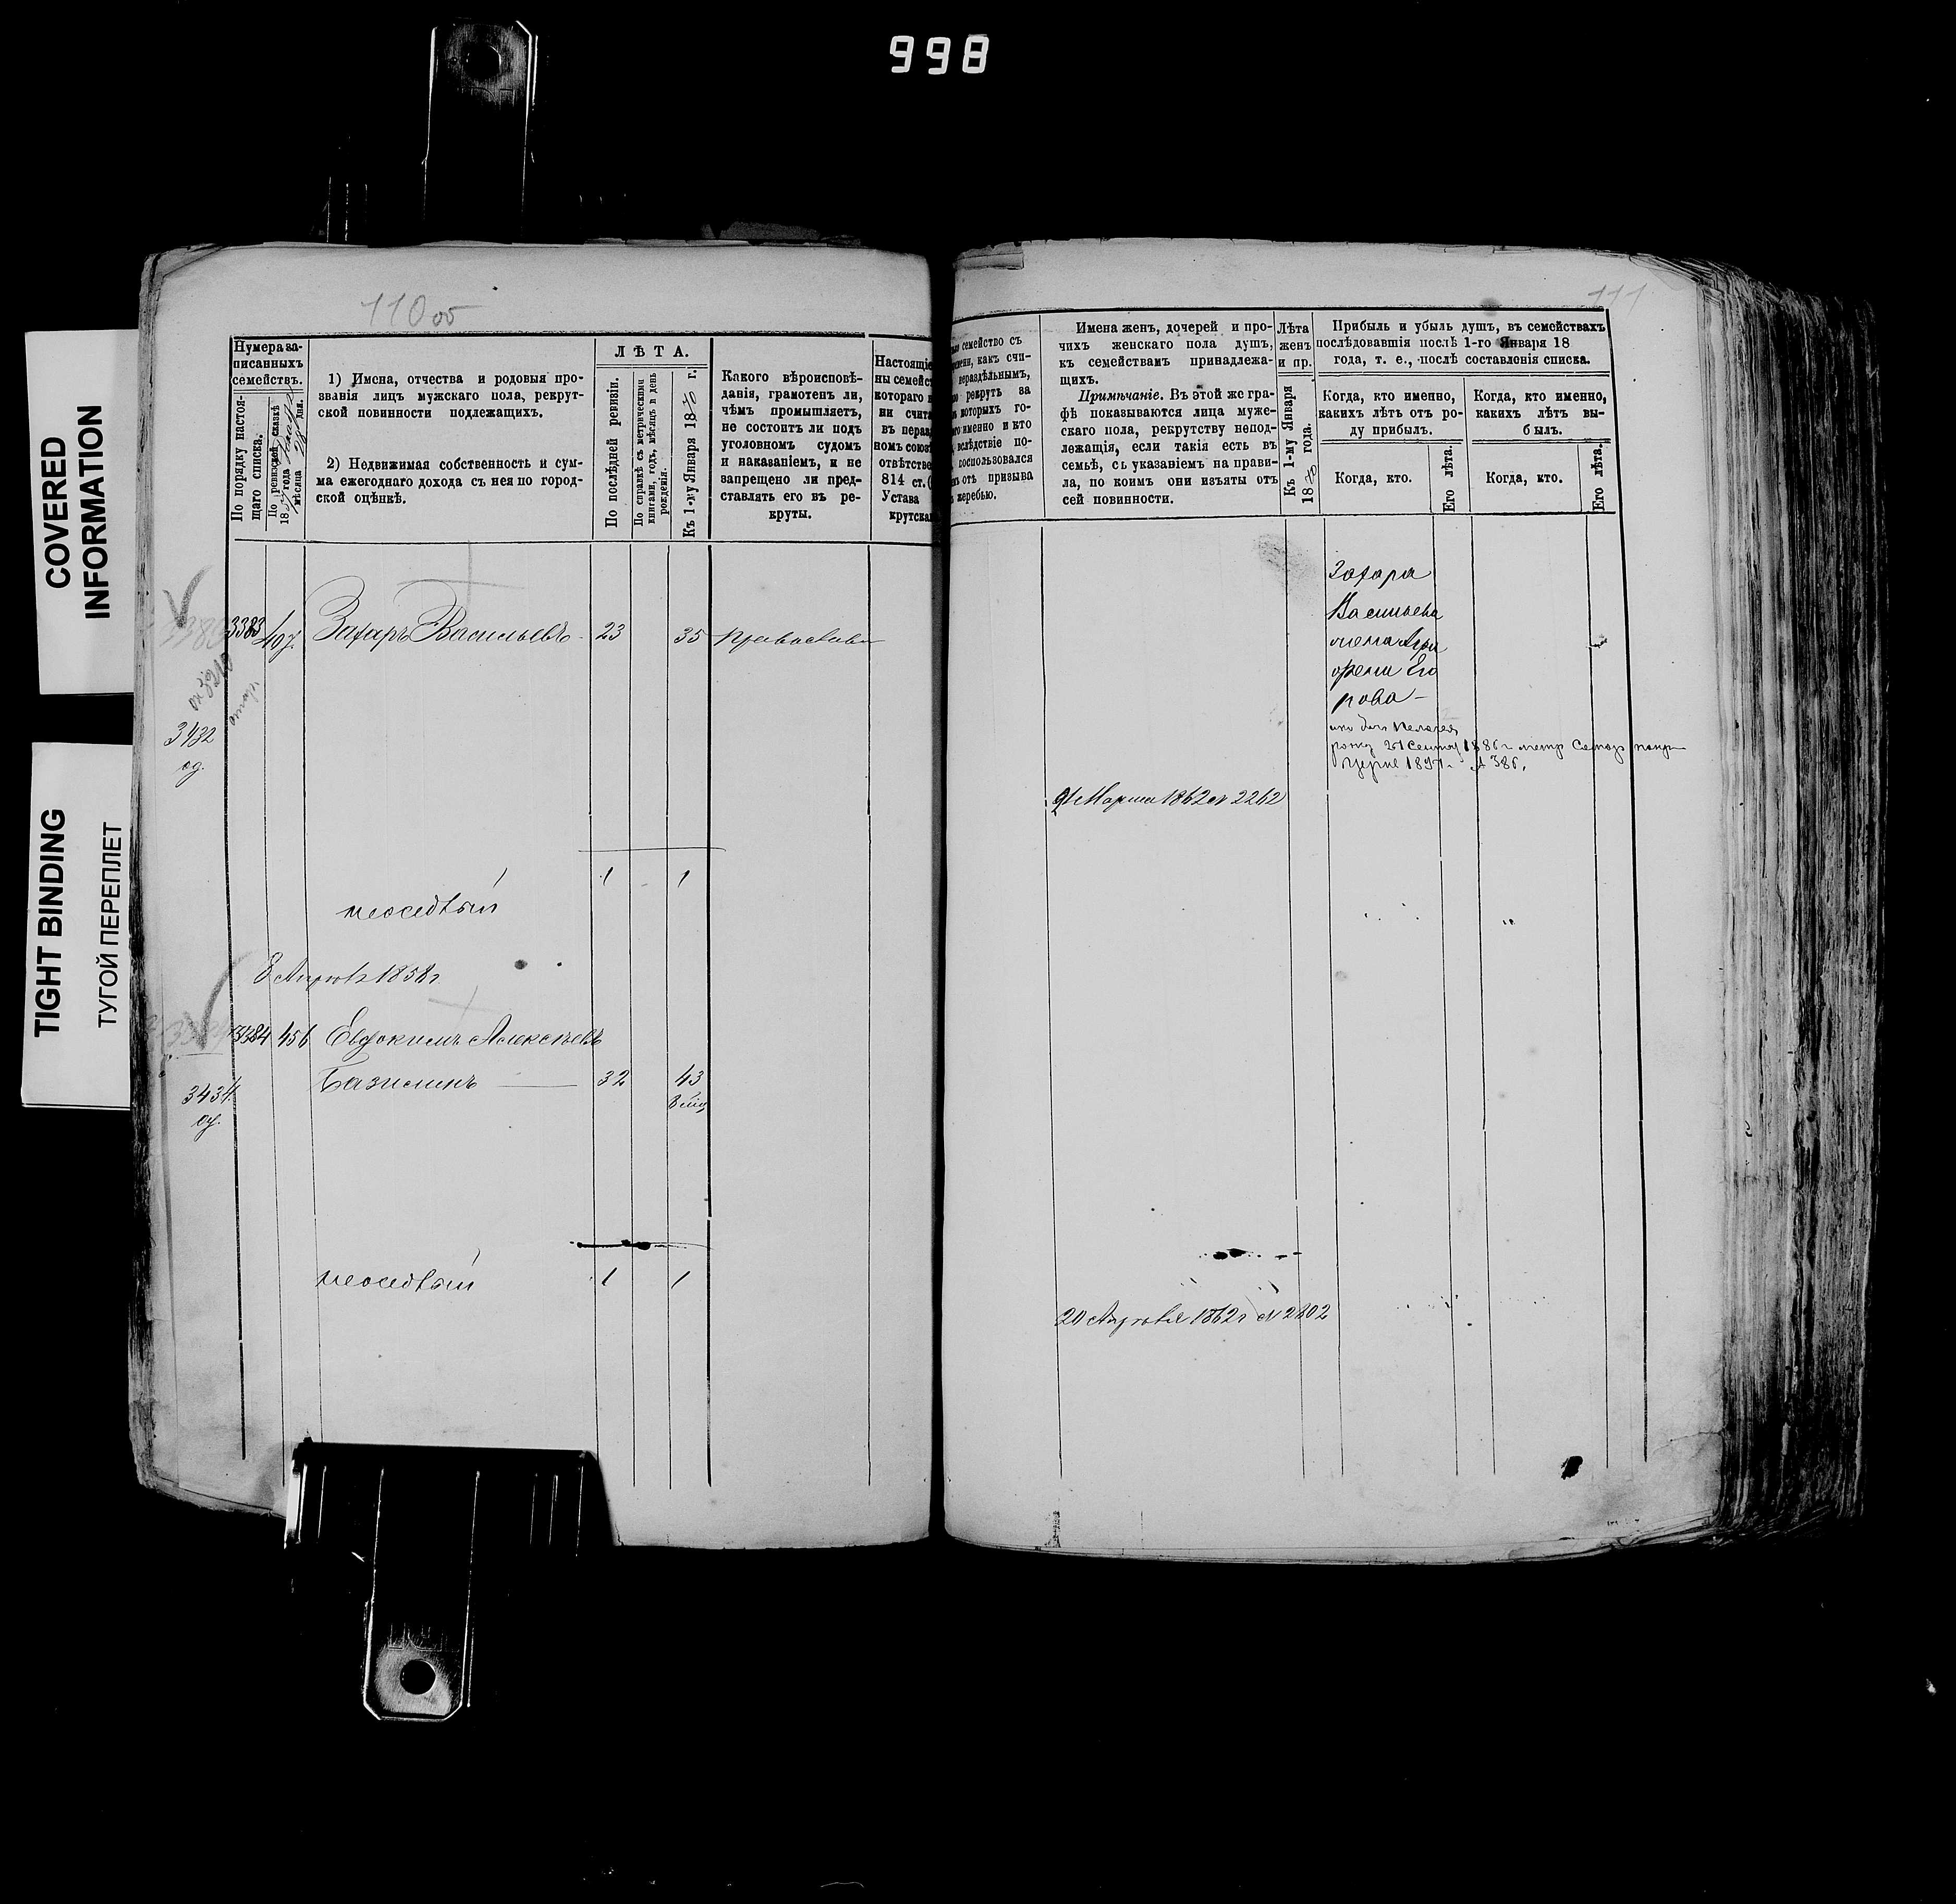 998
COVERED
INFORMATION
TIGHT BINDING
ТУГОЙ ПЕРЕПЛЕТ
110 об
Нумера за-
писанныхъ
семействъ.
По порядку настоя-
щаго списка.
По ревизской сказкѣ
18 года
мѣсяца дня.
1) Имена, отчества и родовыя про-
званія лицъ мужскаго пола, рекрут-
ской повинности подлежащихъ.
2) Недвижимая собственность и сум-
ма ежегоднаго дохода съ нея по город-
ской оцѣнкѣ.
ЛѢТА.
По послѣдней ревизіи.
По справкѣ съ метрическими
книгами, годъ, мѣсяцъ и день
рожденія.
Къ 1-му Января 1870 г.
Какого вѣроисповѣ-
данія, грамотенъ ли,
чѣмъ промышляетъ,
не состоитъ ли подъ
уголовномъ судомъ
и наказаніемъ, и не
запрещено ли пред-
ставлять его въ ре-
круты.
Настоящіе
ны семейст
котораго
ни счита
въ нераз
номъ союз
отвѣтстве
814 ст.
Устава
крутска
3383 Захаръ Васильевъ 23 35 православн
3432
од.
1 1
неосѣдлый
8 Апрѣля 1858 г.
3384 456 Евдокимъ Алексѣевъ
32 43
3434
од.
неосѣдлый 1 1
111
семейство съ
какъ счи-
нераздѣльнымъ,
рекрутъ за
которыхъ го-
именно и кто
вслѣдствіе по-
воспользовался
отъ призыва
жеребью.
Имена женъ, дочерей и про-
чихъ женскаго пола душъ,
къ семействамъ принадлежа-
щихъ.
Примѣчаніе. Въ этой же гра-
фѣ показываются лица муже-
скаго пола, рекрутству непод-
лежащія, если такія есть въ
семьѣ, съ указаніемъ на прави-
ла, по коимъ они изъяты отъ
сей повинности.
Лѣта
женъ
и пр.
Къ 1-му Января
1870 года.
Прибыль и убыль душъ, въ семействахъ
послѣдовавшія послѣ 1-го Января 18
года, т. е., послѣ составленія списка.
Когда, кто именно,
какихъ лѣтъ отъ ро-
ду прибылъ.
Когда, кто именно,
какихъ лѣтъ вы-
былъ.
Когда, кто.
Его лѣта.
Когда, кто.
Его лѣта.
Захара
Васильева
жена Агра
фена Его
рова –
Пелагея
1886 г.
№ 386.
21 Марта 1862 № 2262
20 Апрѣля 1862 г № 2802